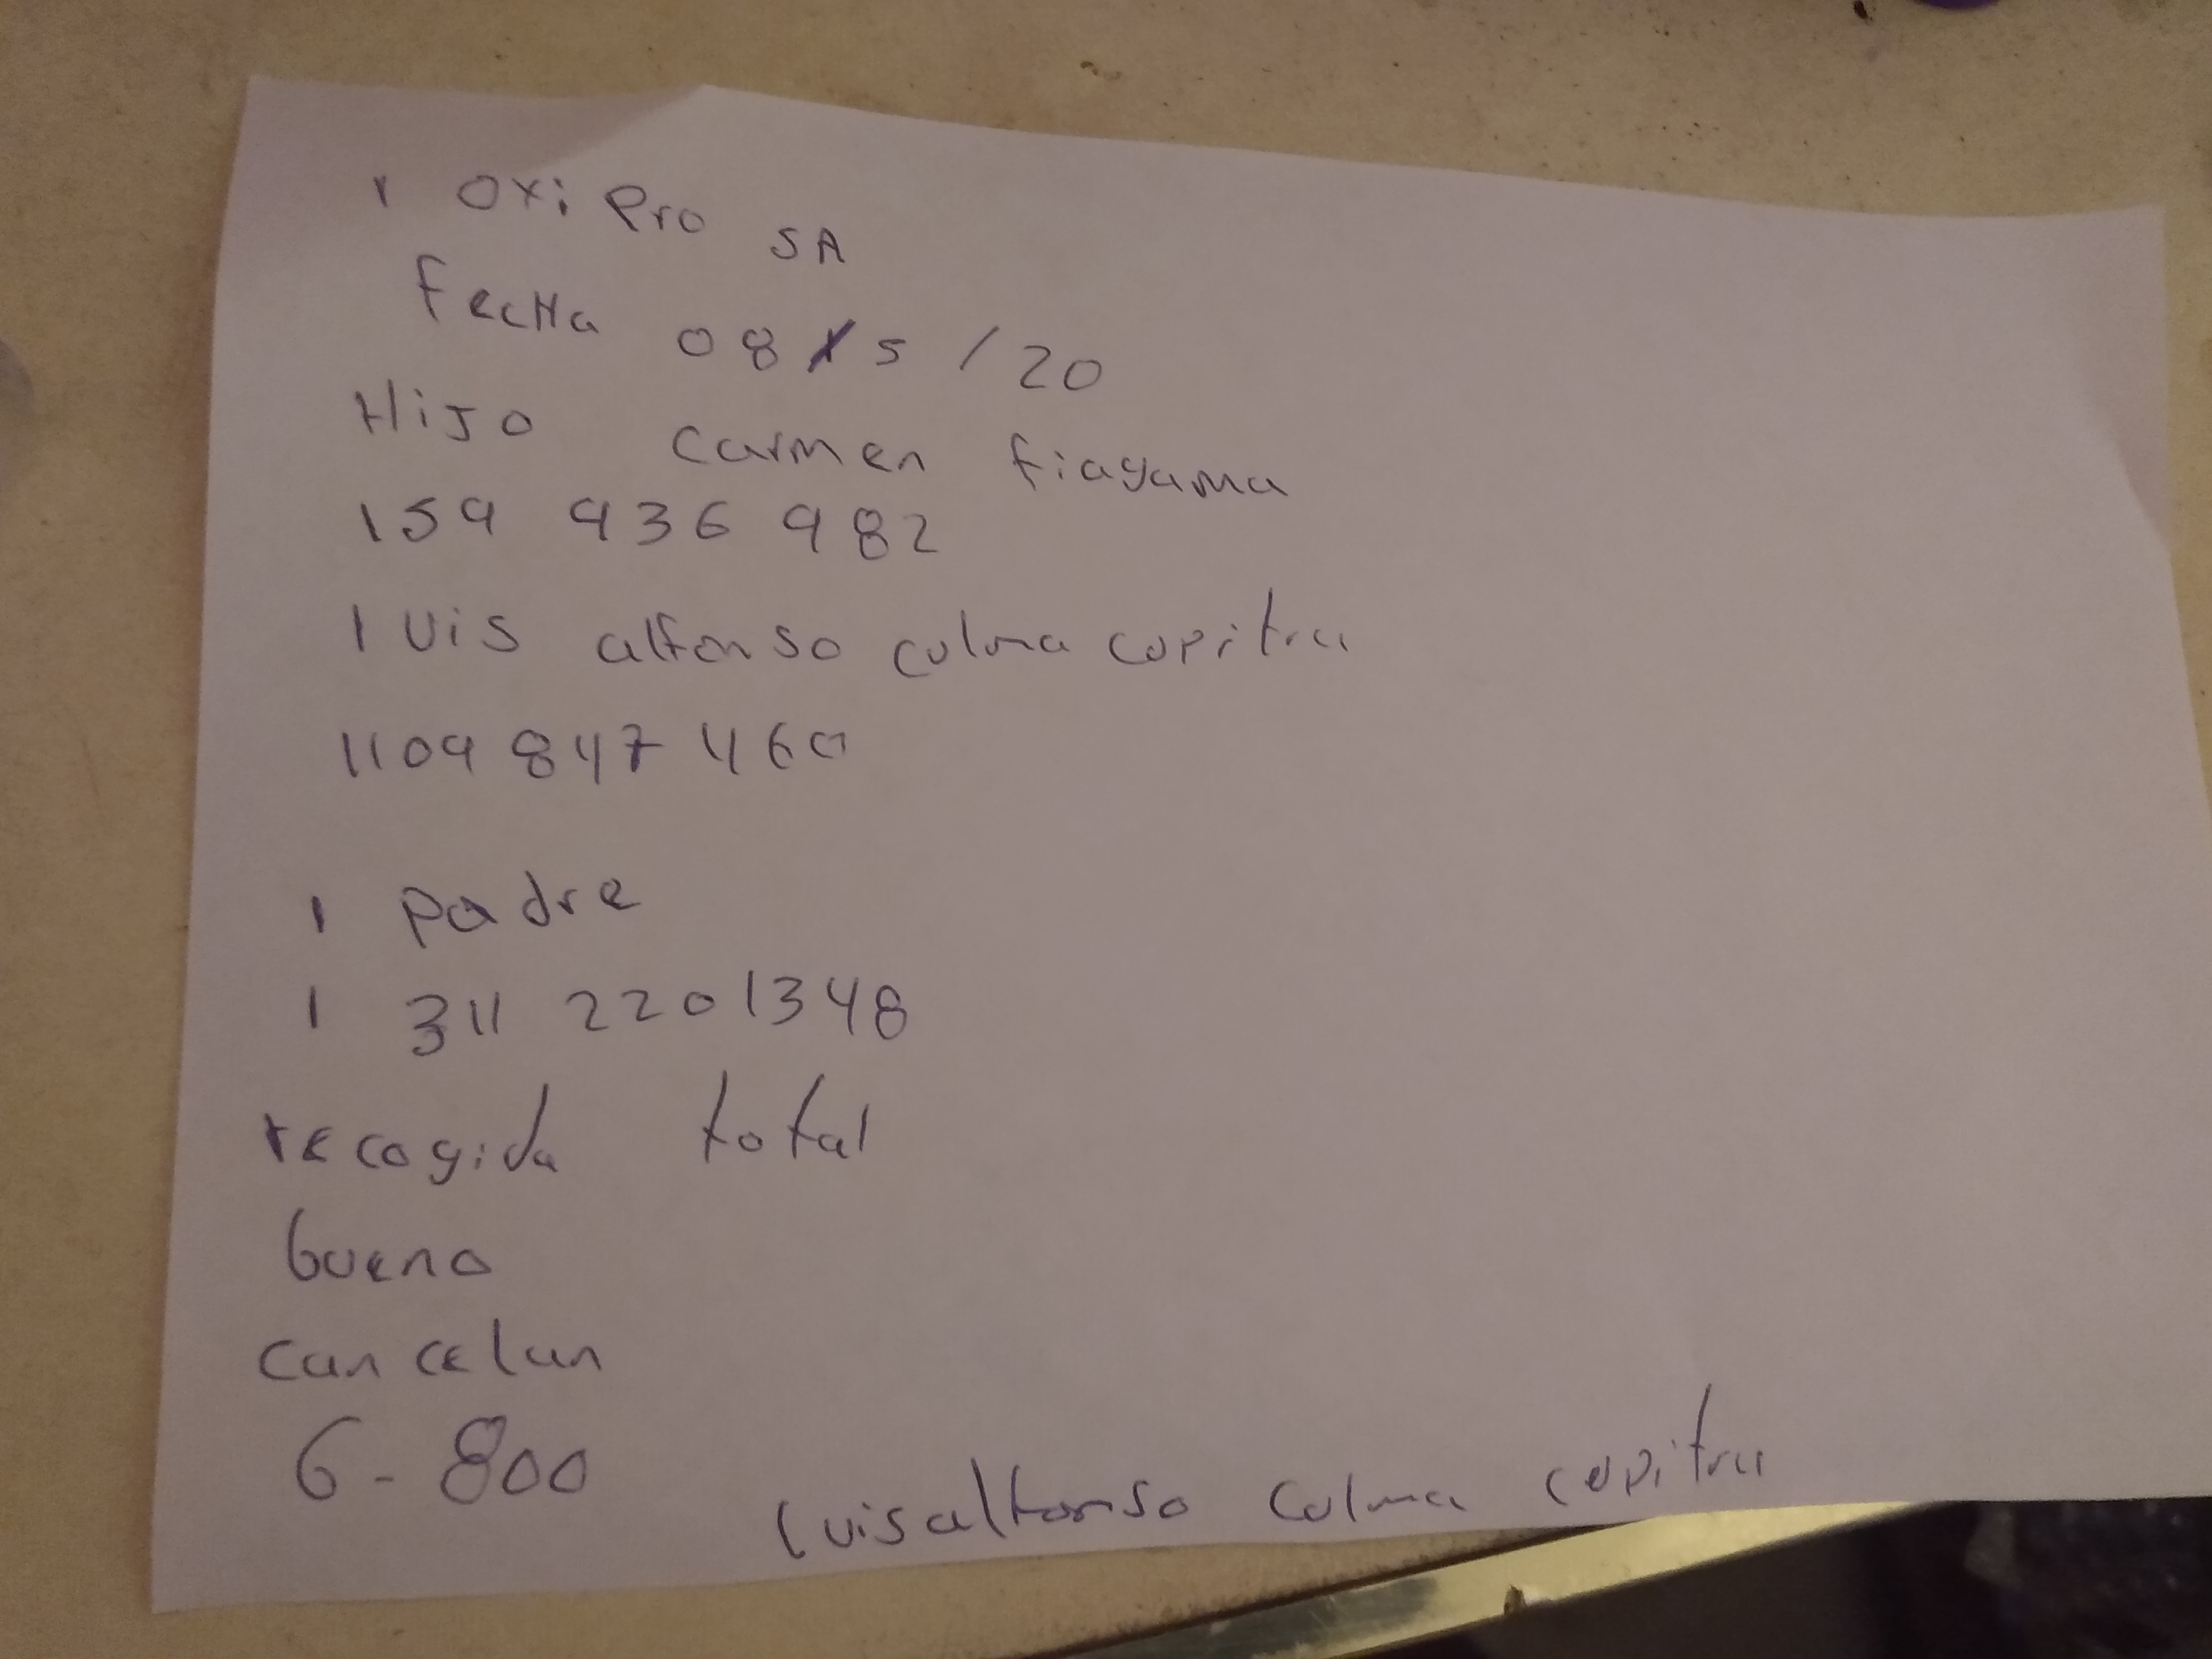 1 oxi Pro SA
FecHa 08/5/20
HiJo Carmen fiayama
159 936 982
luis alfonso culma copitra
1109 847 460
1 padre
1 311 2201348
recogida total
bueno
cancelan
6-800
luis alfonso culma copitra